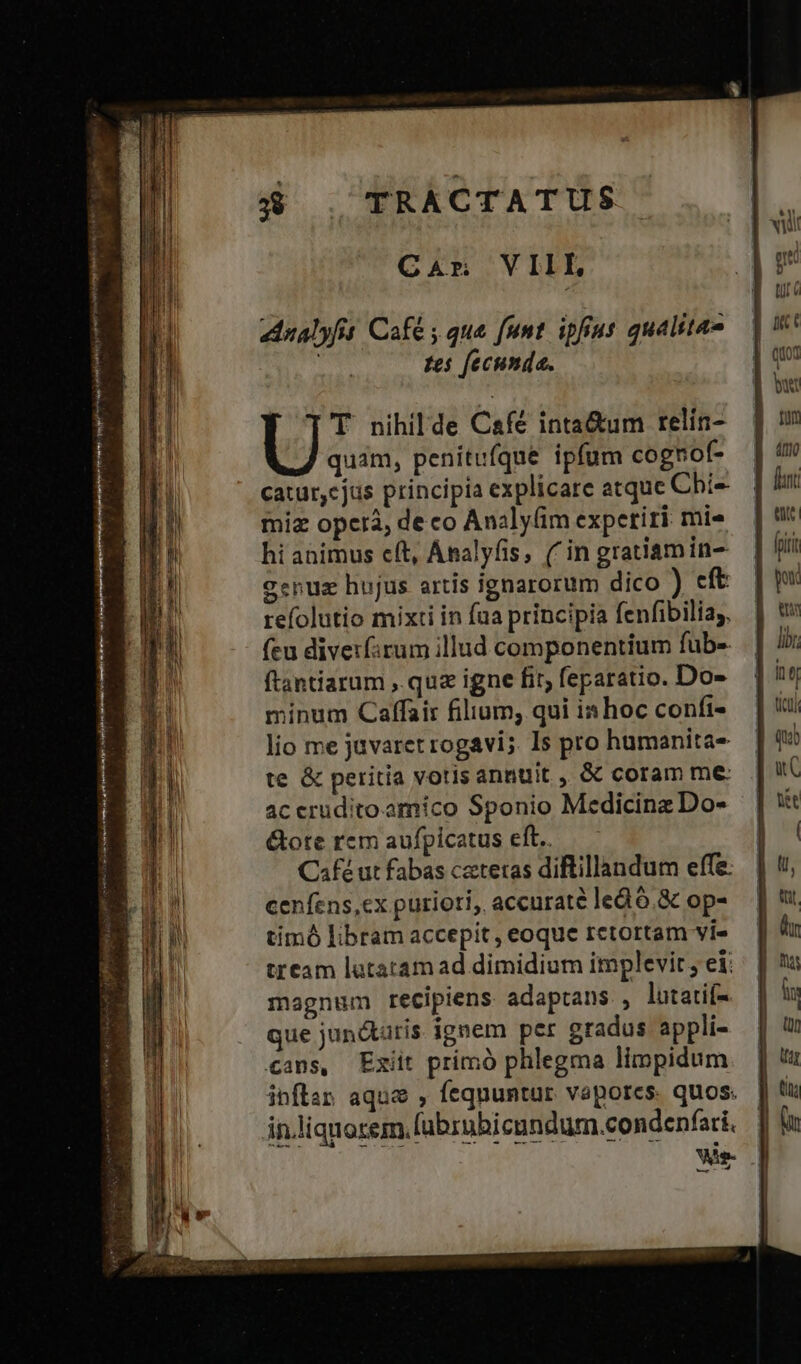 38 TRACTATUS
CAP. VIII.
Analyſis Café ; quæ ſunt ipſius qualita-
tes ſecundæ.
UT nihil de Café intactum relin-
quam, penituſque ipſum cognoſ-
catur, ejus principia explicare atque Chi-
miæ operâ, de eo Analyſim experiri mi-
hi animus eſt, Analyſis, ( in gratiam in-
genuæ hujus artis ignarorum dico ) eſt
reſolutio mixti in ſua principia ſenſibilia,
ſeu diverſarum illud componentium ſub-
ſtantiarum , quæ igne fit, ſeparatio. Do-
minum Caſſair filium, qui in hoc conſi-
lio me juvaret rogavi; Is pro humanita-
te & peritia votis annuit , & coram me
ac erudito amico Sponio Medicinæ Do-
ctore rem auſpicatus eſt.
Café ut fabas cæteras diſtillandum eſſe
cenſens, ex puriori, accuratè lecto & op-
timò libram accepit, eoque retortam vi-
tream lutatam ad dimidium implevit, ei
magnum recipiens adaptans , lutatiſ-
que juncturis ignem per gradus appli-
cans, Exiit primò phlegma limpidum
inſtar aquæ , ſequuntur vapores quos
in liquorem ſubrubicundum condenſari.